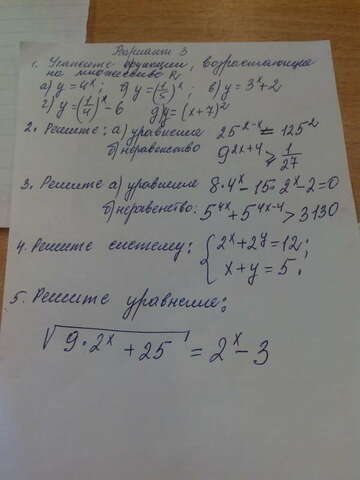 Вариант 3
1. Укажите функции, возрастающие
на множестве R,
а) y = 4ˣ; б) y = (1/5)ˣ; в) y = 3ˣ + 2
г) y = (1/4)ˣ - 6 д) y = (x+7)²
2. Решите: а) уравнение 25²⁻ˣ = 125²
б) неравенство 9²ˣ⁺⁴ > 1/27
3. Решите а) уравнение 8·4ˣ - 15·2ˣ - 2 = 0
б) неравенство: 5⁴ˣ + 5⁴ˣ⁻⁴ > 3130
4. Решите систему: { 2ˣ + 2ʸ = 12;
x + y = 5;
5. Решите уравнение:
√(9·2ˣ + 25) = 2ˣ - 3